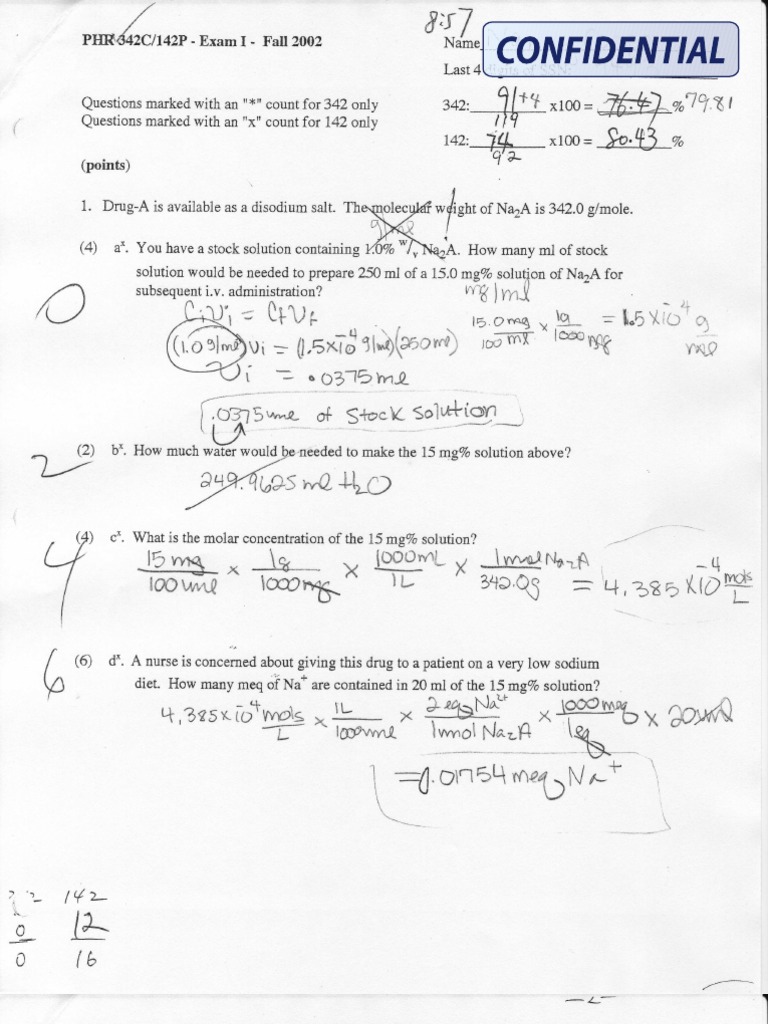 8:57
PHR 342C/142P - Exam I - Fall 2002
Name
CONFIDENTIAL
Last 4 digits of SSN:
Questions marked with an "*" count for 342 only
342: 91+4 x100 = 76.47 % 79.81
119
Questions marked with an "x" count for 142 only
142: 74 x100 = 80.43 %
92
(points)
1. Drug-A is available as a disodium salt. The molecular weight of Na2A is 342.0 g/mole.
g/ml
(4) aˣ. You have a stock solution containing 1.0% w/v Na2A. How many ml of stock
solution would be needed to prepare 250 ml of a 15.0 mg% solution of Na2A for
subsequent i.v. administration?
mg/ml
0
CiVi = CfVf
15.0mg/100ml x 1g/1000mg = 1.5x10⁻⁴ g/ml
(1.0g/ml)Vi = (1.5x10⁻⁴g/ml)(250ml)
Vi = .0375ml
.0375ml of stock solution
2
(2) bˣ. How much water would be needed to make the 15 mg% solution above?
249.9625ml H2O
4
(4) cˣ. What is the molar concentration of the 15 mg% solution?
15mg/100ml x 1g/1000mg x 1000mL/1L x 1mol Na2A/342.0g = 4.385x10⁻⁴ mols/L
6
(6) dˣ. A nurse is concerned about giving this drug to a patient on a very low sodium
diet. How many meq of Na⁺ are contained in 20 ml of the 15 mg% solution?
4.385x10⁻⁴mols/L x 1L/1000ml x 2eq Na²⁺/1mol Na2A x 1000meq/1eq x 20ml
=0.01754meq Na⁺
142
0 12
0 16